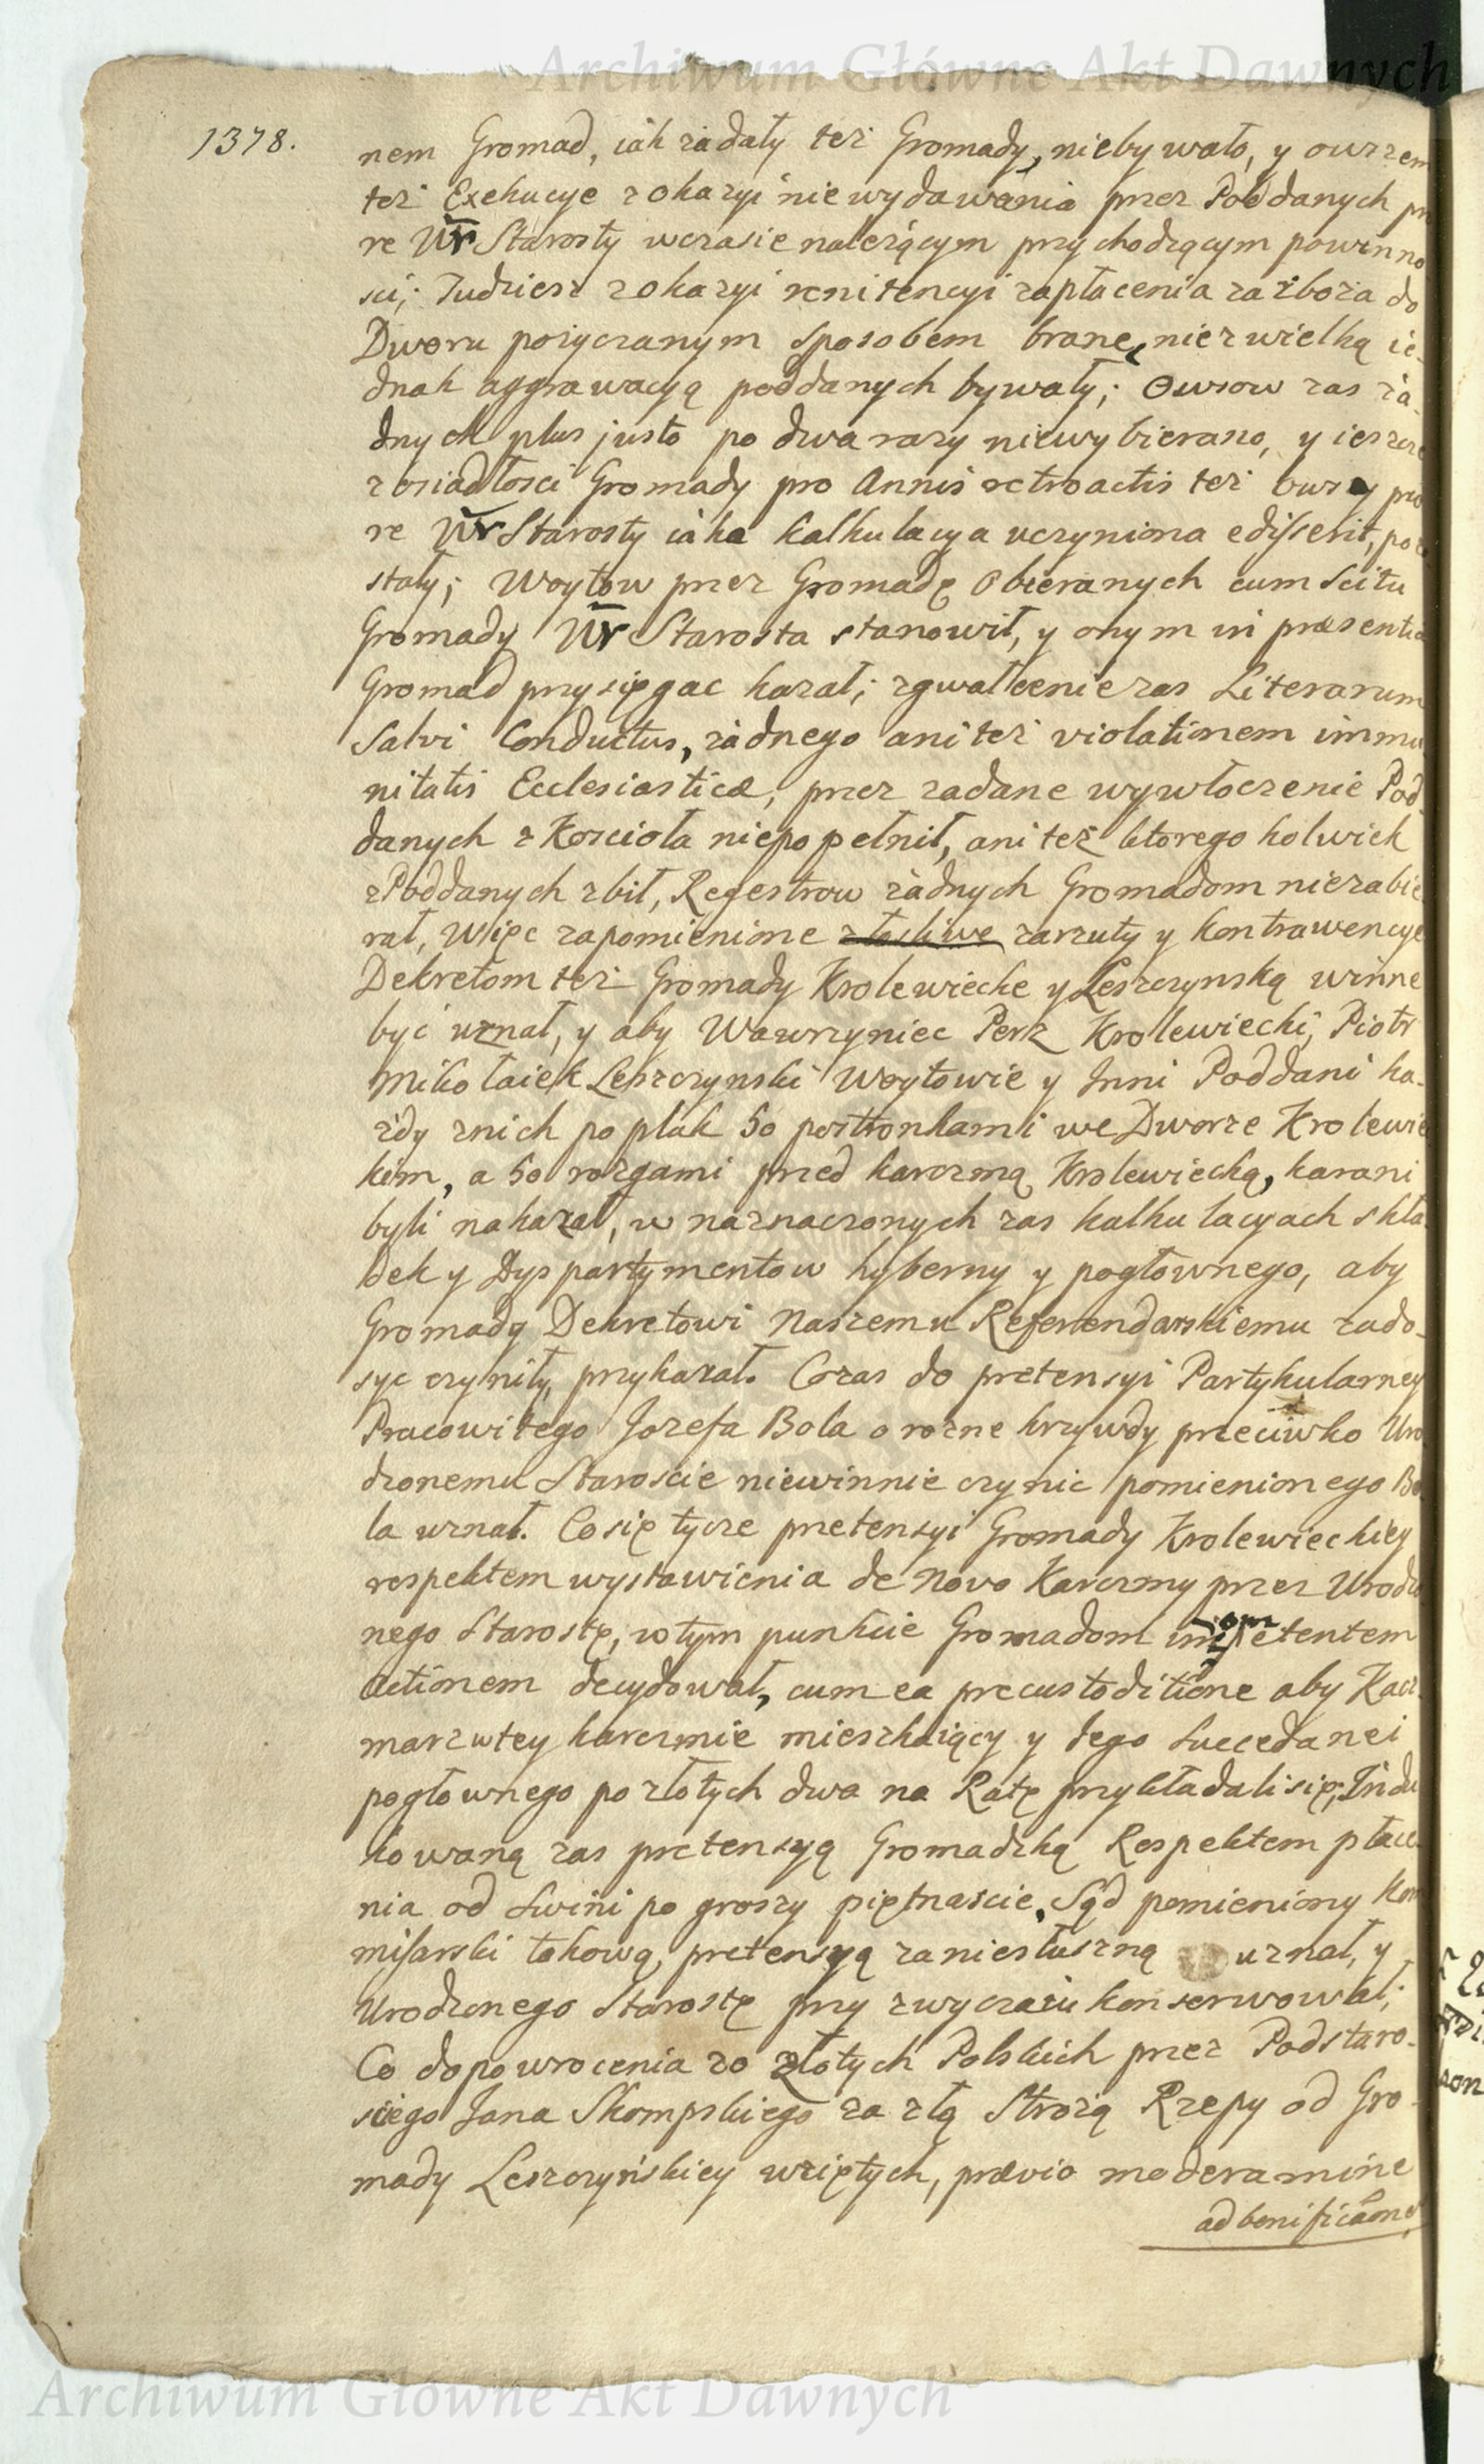 Archiwum Główne Akt Dawnych
1378.
nem Gromad, iak żadały też Gromady, niebywało, y owszem
też Exekucye z okazyi niewydawania przez Poddanych pro
re Ur Starosty wczasie należącym przychodzącym powinno
sci; Tudziesz z okazyi renitencyi zapłacenia za zboża do
Dworu pożyczanym sposobem brane, niezwielką ie-
dnak aggrawacyą poddanych bywały; Owsow zas ża-
dnych plus justo po dwa razy niewybierano, y ieszcze
z osiadłosci Gromady pro Annis retroactis też owsy pro
re Ur Starosty iaka kalkulacya uczyniona edisserit, pozo
stały; Woytow przez Gromadę Obieranych cum Scitu
Gromady Ur Starosta stanowił, y onym in præsentia
Gromad przysięgac kazał; zgwałcenie zas Literarum
Salvi Conductus, żadnego ani też violationem immu
nitatis Ecclesiasticæ, przez zadane wywłoczenie Pod
danych z Koscioła niepopełnił, ani też ktorego kolwiek
z Poddanych zbił, Regestrow żadnych Gromadom niezabie
rał, Więc zapomienione złosliwe zarzuty y kontrawencye
Dekretom też Gromady Krolewieckę y Leszczynską winne
być uznał, y aby Wawrzyniec Perz Krolewiecki, Piotr
Mikołaiek Leszczynski Woytowie y Inni Poddani ka-
żdy znich po plak 50 postronkami we Dworze Krolewie
kim, a 50 rozgami przed karczmą Krolewiecką, karani
byli nakazał, w naznaczonych zas kalkulacyach skła
dek y Dyspartymentow hyberny y pogłownego, aby
Gromady Dekretowi Naszemu Referendarskiemu zado-
syc czyniły, przykazał. Czas do pretensyi Partykularney
Pracowitego Jozefa Bola o rozne krzywdy przeciwko Uro
dzonemu Staroscie niewinnie czynic pomienionego Bo
la uznał. Co się tycze pretensyi Gromady Krolewieckiey
respektem wystawienia de Novo Karczmy przez Urodzo
nego Starostę, wtym punkcie Gromadom
actionem decydował, cum ea precustoditione aby Kacz-
marz wtey karczmie mieszkaiący y tego Succedanei
pogłownego po złotych dwa na Ratę przykładali się; Indu
kowaną zas pretensyą Gromadzką Respektem płace
nia od Swini po groszy piętnascie, Sąd pomieniony Kom
misarski takową pretensyą zaniesłuszną uznał, y
Urodzonego Starostę przy zwyczaiu konserwował;
Co do powrocenia 20 złotych Polskich przez Podstaro-
sciego Jana Skompskiego za złą Strożą Rzepy od Gro-
mady Leszczyńskiey wziętych, prævio moderamine
ad bonificãone
Archiwum Główne Akt Dawnych